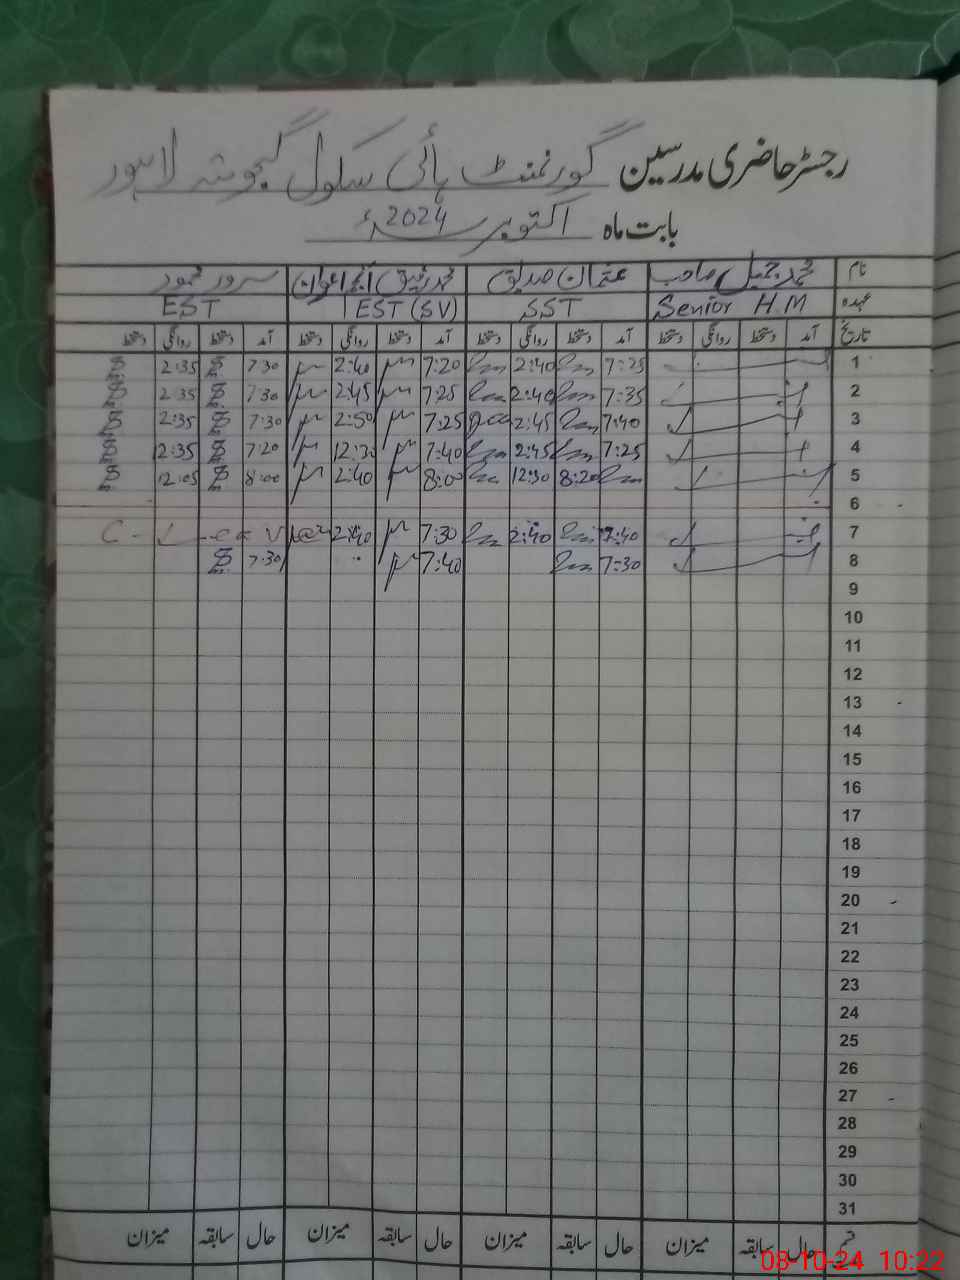 رجسٹر حاضری مدرسین گورنمنٹ ہائی سکول گجومتہ لاہور
بابت ماہ اکتوبر 2024ء
نام محمد جمیل صاحب عثمان صدیق محمد رفیق انجم اعوان سرور محمود
عہدہ Senior H.M SST EST (SV) EST
تاریخ آمد دستخط روانگی دستخط آمد دستخط روانگی دستخط آمد دستخط روانگی دستخط آمد دستخط روانگی دستخط
1 7:25 2:40 7:20 2:40 7:30 2:35
2 7:35 2:40 7:25 2:45 7:30 2:35
3 7:40 2:45 7:25 2:50 7:30 2:35
4 7:25 2:45 7:40 12:30 7:20 2:35
5 8:20 12:30 8:00 2:40 8:00 12:05
6
7 7:40 2:40 7:30 2:40 C-Leav
8 7:30 7:40 7:30
9
10
11
12
13
14
15
16
17
18
19
20
21
22
23
24
25
26
27
28
29
30
31
حال سابقہ میزان حال سابقہ میزان حال سابقہ میزان حال سابقہ میزان
08-10-24 10:22